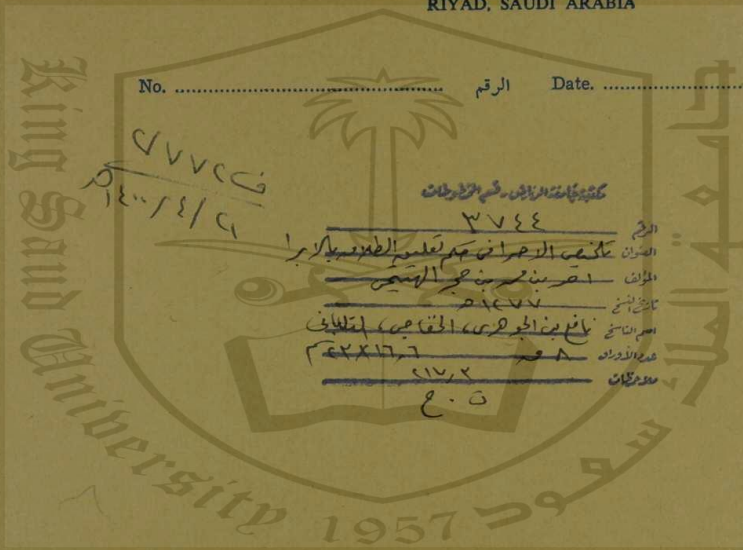 RIYAD, SAUDI ARABIA
No. الرقم Date.
ف ٢/٧٧٢
١٤٠٠/٤/٢١ هـ
مكتبة جامعة الرياض - قسم المخطوطات
الرقم ٣٧٤٤
العنوان تلخيص الاحرا في حكم تعليق الطلاق بالابرا
المؤلف احمد بن محمد بن حجر الهيتمي
تاريخ النسخ ١٢٧٧ هـ
اسم الناسخ نافع بن الجوهري، الخفاجي، التلباني
عدد الأوراق ٨ ق ٢٣٫٢×١٦٫٦ سم
ملاحظات ٢١٧٫٣
ت . ح
King Saud University
1957
جامعة الملك سعود